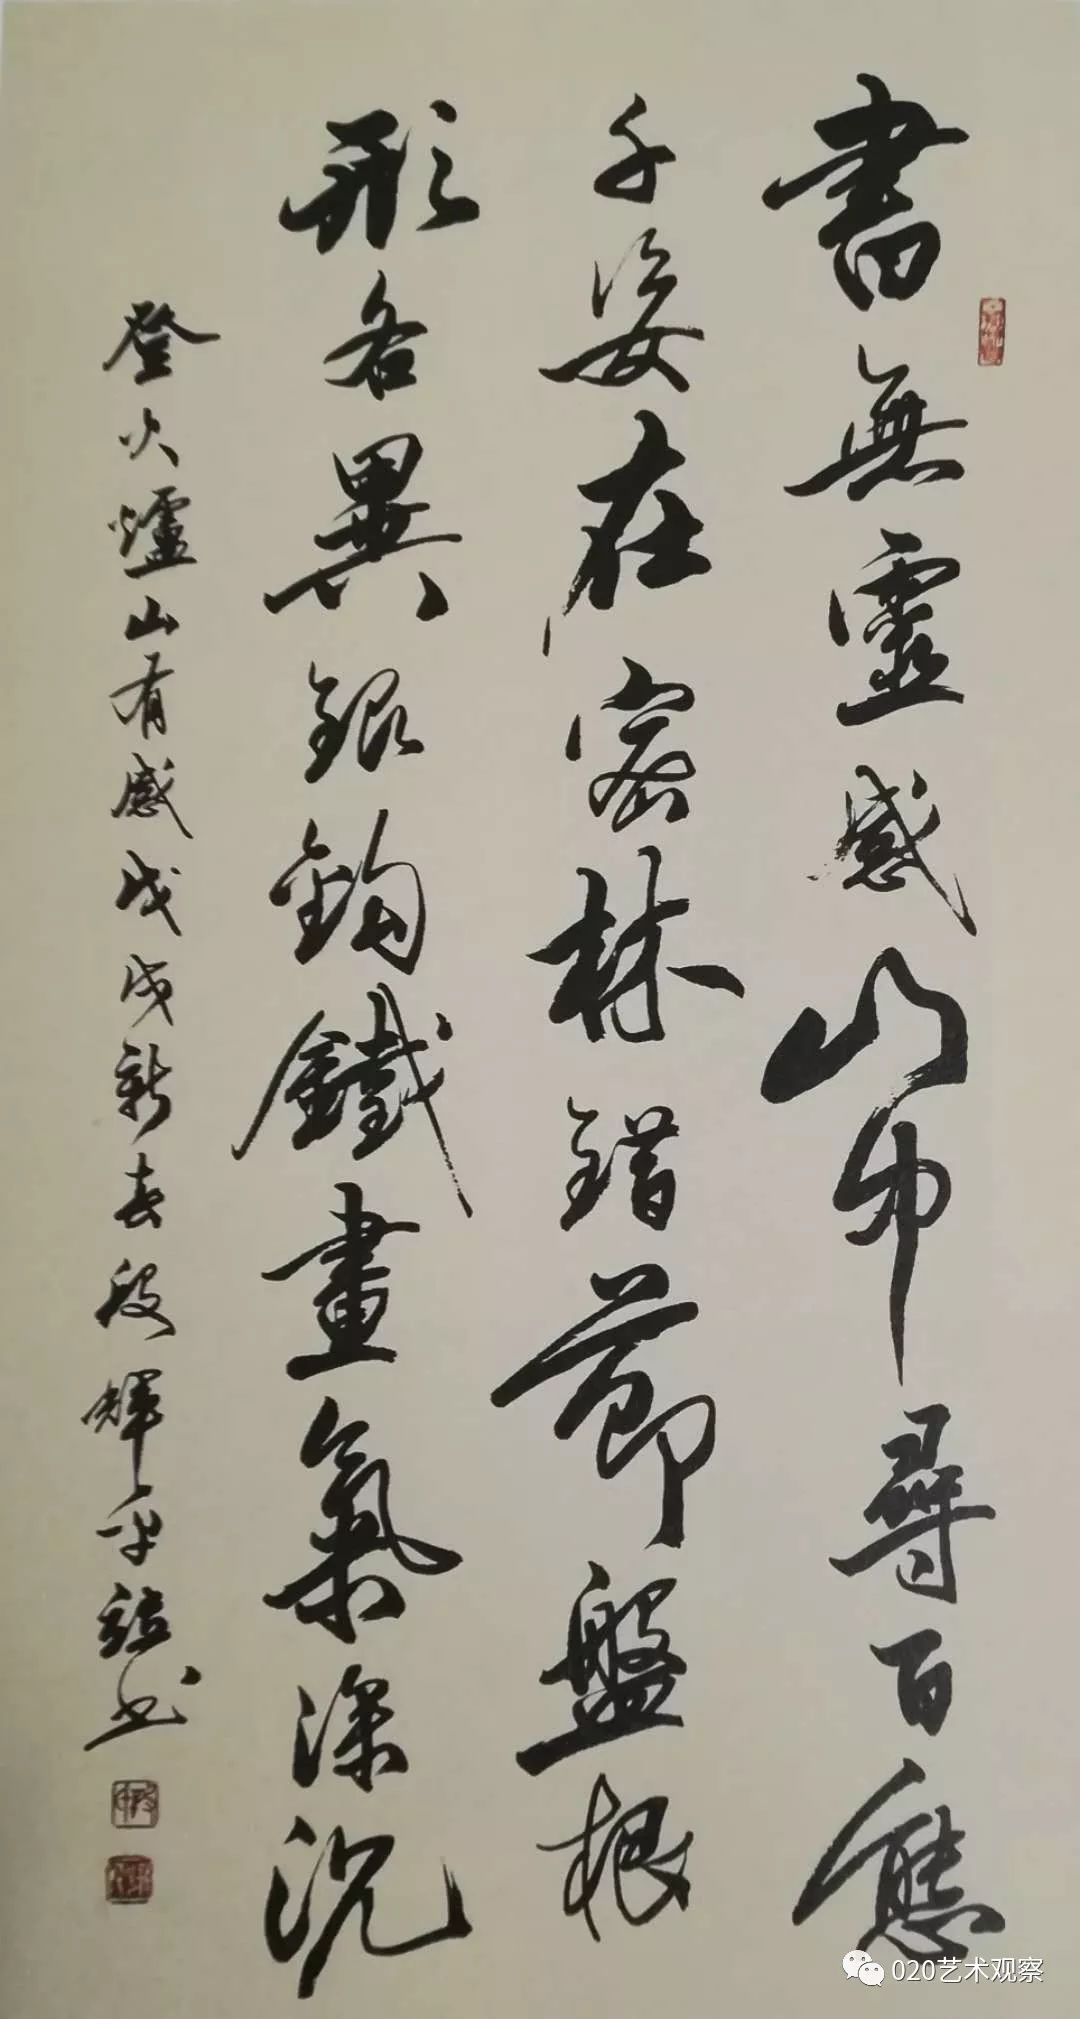 書無靈感山中尋百態
千姿在密林錯節盤根
形各異銀鉤鐵畫氣深沉
登火爐山有感戊戌新春段輝平詩書
020艺术观察